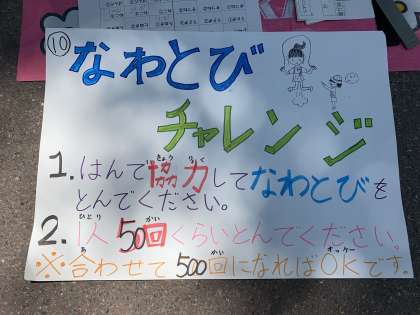 ⑩ なわとび
チャレンジ
1. はんで協力してなわとびを
とんでください。
2. 1人50回くらいとんでください。
※合わせて500回になればOKです。